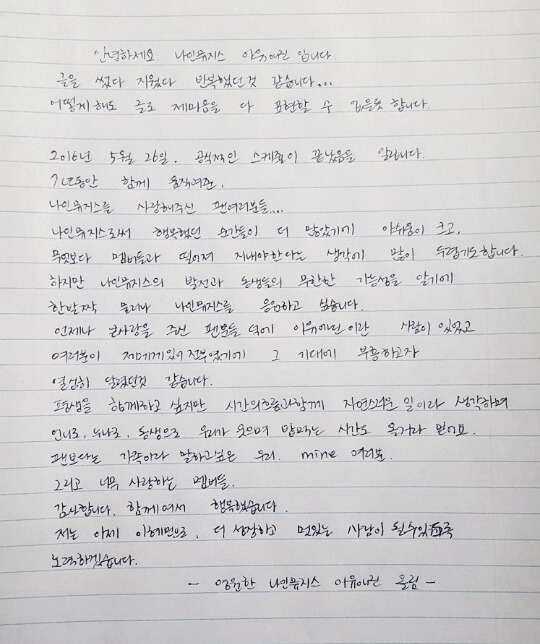 안녕하세요. 나인뮤지스 이유애린 입니다.
글을 썼다 지웠다 반복했던것 같습니다...
어떻게해도 글로 제마음을 다 표현할 수 없을듯 합니다.
2016년 5월 26일. 공식적인 스케줄이 끝났음을 알립니다.
7년동안 함께 움직여준,
나인뮤지스를 사랑해주신 팬여러분들....
나인뮤지스로써 행복했던 순간들이 더 많았기에 아쉬움이 크고,
무엇보다 멤버들과 떨어져 지내야한다는 생각에 많이 두렵기도합니다.
하지만 나인뮤지스의 발전과 동생들의 무한한 가능성을 알기에
한발짝 물러나 나인뮤지스를 응원하고 싶습니다.
언제나 큰사랑을 주신 팬분들 덕에 이유애린이란 사람이 있었고
여러분이 저에게있어 전부였기에 그 기대에 부응하고자
열심히 달렸던것 같습니다.
평생을 함께하고 싶지만 시간의흐름과함께 자연스러운 일이라 생각하며
언니로, 누나로, 동생으로 우리가 웃으며 만나는 시간도 올거라 믿어요.
팬보다는 가족이라 말하고싶은 우리. mine 여러분.
그리고 너무 사랑하는 멤버들.
감사합니다. 함께여서 행복했습니다.
저는 이제 이혜민으로, 더 성장하고 멋있는 사람이 될수있도록
노력하겠습니다.
- 영원한 나인뮤지스 이유애린 올림 -